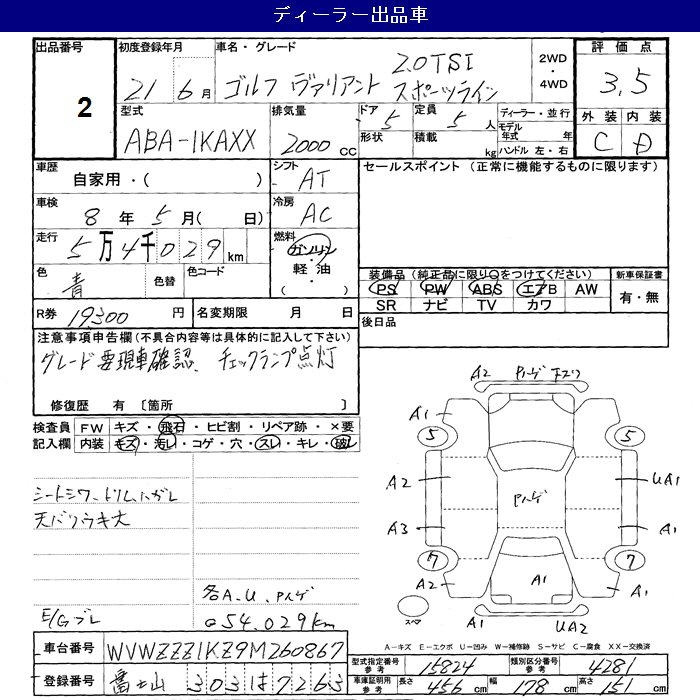 ディーラー出品車
出品番号 2
初度登録年月 21 6月
車名・グレード 2.0TSI
ゴルフ ヴァリアント スポーツライン
2WD・4WD
評価点 3.5
外装 内装
C D
型式 ABA-1KAXX
排気量 2000cc
ドア 5
定員 5人
形状
積載 kg
ディーラー・並行
モデル年式 年
ハンドル 左・右
車歴 自家用・( )
シフト AT
セールスポイント (正常に機能するものに限ります)
車検 8年 5月( 日)
冷房 AC
走行 5万4千029km
燃料 ガソリン・軽油・( )
色 青 色替
色コード
装備品 (純正品に限り○をつけてください)
新車保証書
PS PW ABS エアB AW
有・無
SR ナビ TV カワ
R券 19300円
名変期限 月 日
後日品
注意事項申告欄(不具合内容等は具体的に記入して下さい)
グレード要現車確認、 チェックランプ点灯
修復歴 有 〔箇所 〕
検査員 FW キズ・飛石・ヒビ割・リペア跡・×要
記入欄 内装 キズ・汚レ・コゲ・穴・スレ・キレ・破レ
シートシワ、トリムハガレ
天バリウキ大
各A、U、Pハゲ
E/Gブレ
◎54,029km
A2 Pハゲ
A1
5 5
A2
UA1
Pハゲ
A3
A1
7 7
A2
A1
A1
スペア
A1 UA2
A-キズ E-エクボ U-凹み W-補修跡 S-サビ C-腐食 XX-交換済
車台番号 WVWZZZ1KZ9M260867
型式指定番号 参考 15824
類別区分番号 参考 4281
登録番号 富士山 303は7263
車庫証明用 参考 長さ 456cm 幅 178cm 高さ 151cm